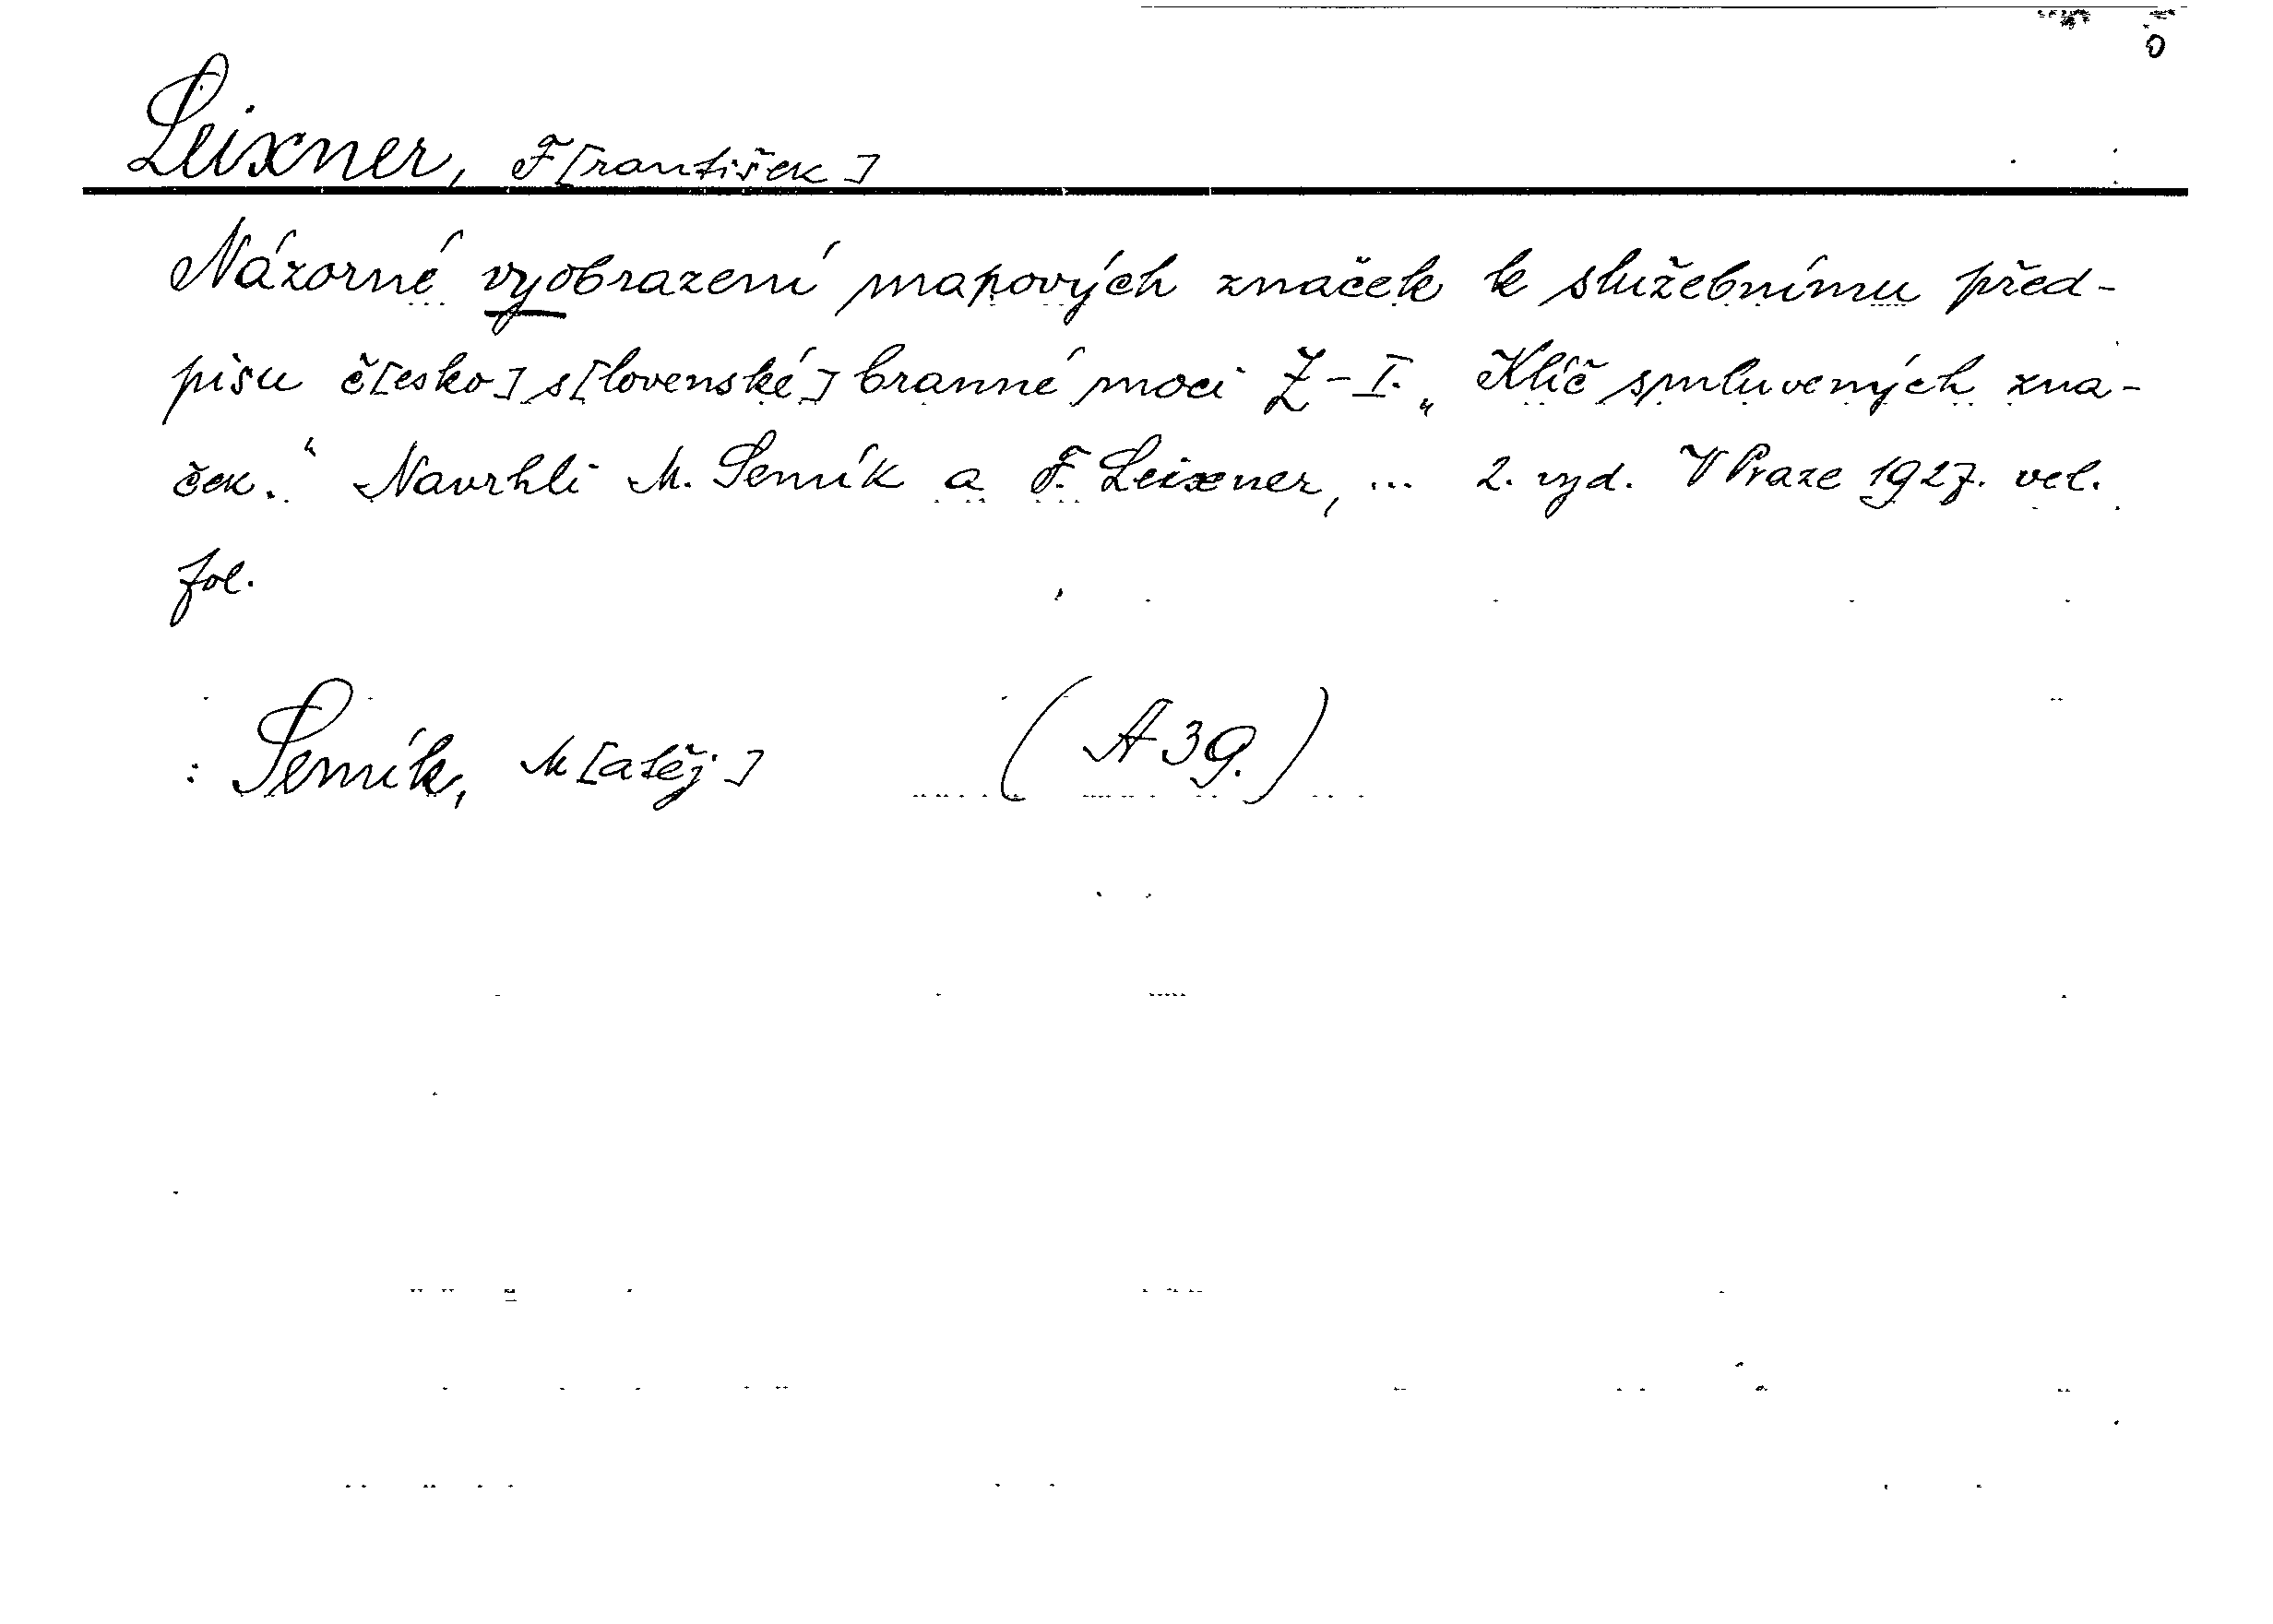 Leixner, F[rantišek]
Názorné vyobrazení mapových značek k služebnímu před-
pisu č[esko]s[lovenské] branné moci Ž-I. „Klíč smluvených zna-
ček.“ Navrhli M. Semík a F. Leixner, ... 2. vyd. V Praze 1927. vel.
fol.
: Semík, M[atěj] (A 39.)